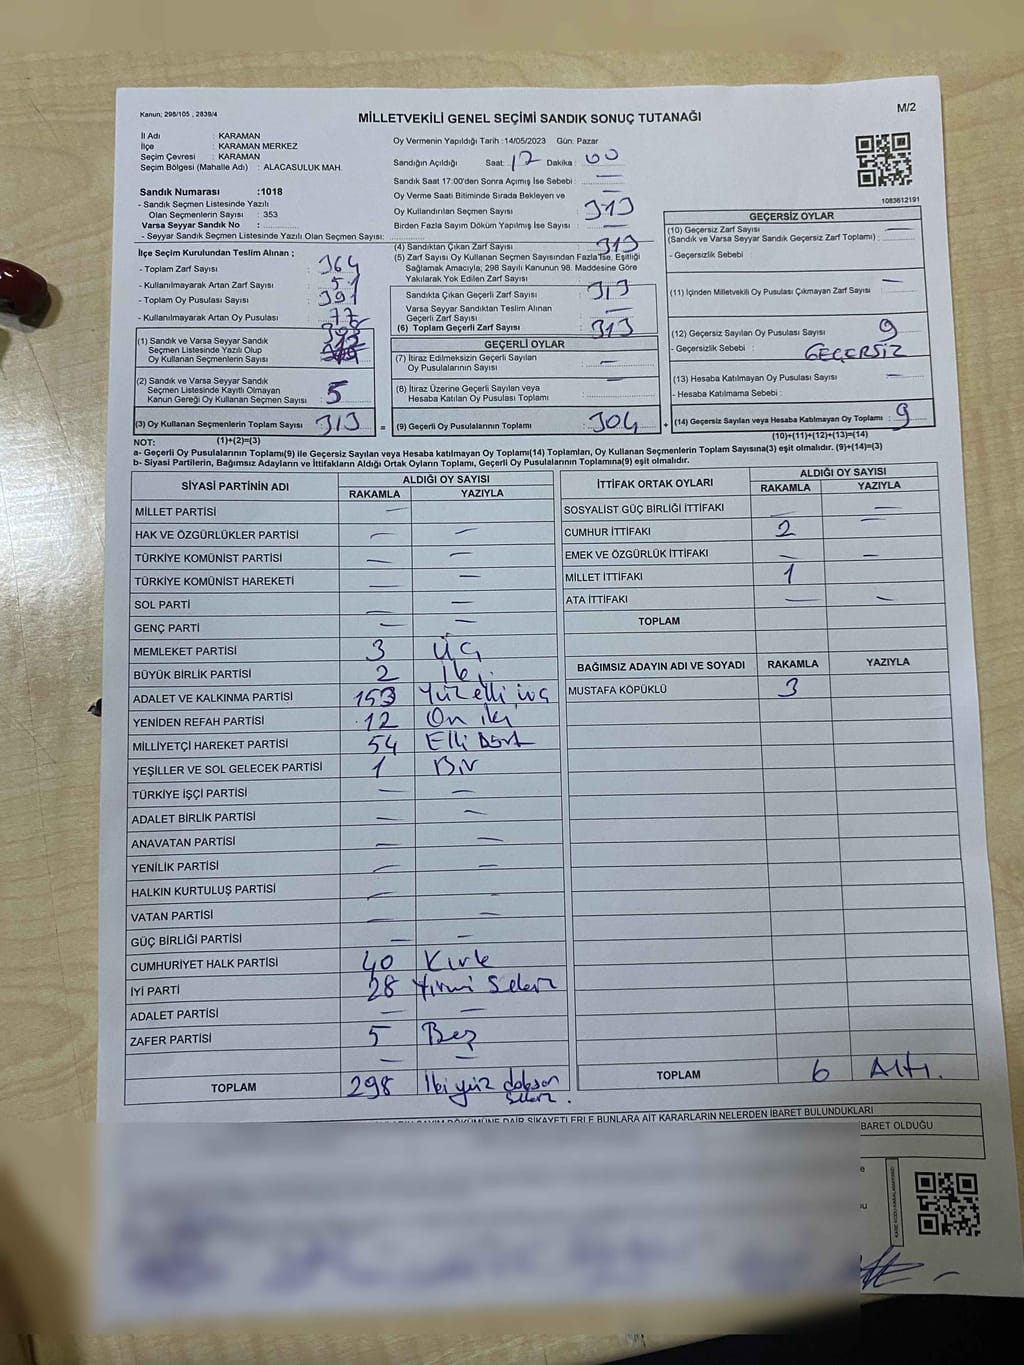 Kanun; 298/105 , 2839/4
M/2
MİLLETVEKİLİ GENEL SEÇİMİ SANDIK SONUÇ TUTANAĞI
İl Adı : KARAMAN
İlçe : KARAMAN MERKEZ
Seçim Çevresi : KARAMAN
Seçim Bölgesi (Mahalle Adı) : ALACASULUK MAH.
Sandık Numarası :1018
- Sandık Seçmen Listesinde Yazılı
Olan Seçmenlerin Sayısı : 353
Varsa Seyyar Sandık No :
- Seyyar Sandık Seçmen Listesinde Yazılı Olan Seçmen Sayısı:
Oy Vermenin Yapıldığı Tarih :14/05/2023 Gün: Pazar
Sandığın Açıldığı Saat: 17 Dakika: 00
Sandık Saat 17:00'den Sonra Açımış İse Sebebi : —
Oy Verme Saati Bitiminde Sırada Bekleyen ve
Oy Kullandırılan Seçmen Sayısı : 313
Birden Fazla Sayım Döküm Yapılmış İse Sayısı : —
1083612191
İlçe Seçim Kurulundan Teslim Alınan ;
- Toplam Zarf Sayısı : 364
- Kullanılmayarak Artan Zarf Sayısı : 51
- Toplam Oy Pusulası Sayısı : 391
- Kullanılmayarak Artan Oy Pusulası : 77
(1) Sandık ve Varsa Seyyar Sandık
Seçmen Listesinde Yazılı Olup
Oy Kullanan Seçmenlerin Sayısı :
(2) Sandık ve Varsa Seyyar Sandık
Seçmen Listesinde Kayıtlı Olmayan
Kanun Gereği Oy Kullanan Seçmen Sayısı : 5
(3) Oy Kullanan Seçmenlerin Toplam Sayısı : 313
(4) Sandıktan Çıkan Zarf Sayısı : 313
(5) Zarf Sayısı Oy Kullanan Seçmen Sayısından Fazla İse, Eşitliği
Sağlamak Amacıyla; 298 Sayılı Kanunun 98. Maddesine Göre
Yakılarak Yok Edilen Zarf Sayısı : —
Sandıkta Çıkan Geçerli Zarf Sayısı : 313
Varsa Seyyar Sandıktan Teslim Alınan
Geçerli Zarf Sayısı : —
(6) Toplam Geçerli Zarf Sayısı : 313
GEÇERLİ OYLAR
(7) İtiraz Edilmeksizin Geçerli Sayılan
Oy Pusulalarının Sayısı : —
(8) İtiraz Üzerine Geçerli Sayılan veya
Hesaba Katılan Oy Pusulası Toplamı : —
= (9) Geçerli Oy Pusulalarının Toplamı : 304
GEÇERSİZ OYLAR
(10) Geçersiz Zarf Sayısı —
(Sandık ve Varsa Seyyar Sandık Geçersiz Zarf Toplamı) :
- Geçersizlik Sebebi
(11) İçinden Milletvekili Oy Pusulası Çıkmayan Zarf Sayısı : —
(12) Geçersiz Sayılan Oy Pusulası Sayısı : 9
- Geçersizlik Sebebi : GEÇERSİZ
(13) Hesaba Katılmayan Oy Pusulası Sayısı : —
- Hesaba Katılmama Sebebi :
+ (14) Geçersiz Sayılan veya Hesaba Katılmayan Oy Toplamı : 9
NOT: (1)+(2)=(3)
(10)+(11)+(12)+(13)=(14)
a- Geçerli Oy Pusulalarının Toplamı(9) ile Geçersiz Sayılan veya Hesaba katılmayan Oy Toplamı(14) Toplamları, Oy Kullanan Seçmenlerin Toplam Sayısına(3) eşit olmalıdır. (9)+(14)=(3)
b- Siyasi Partilerin, Bağımsız Adayların ve İttifakların Aldığı Ortak Oyların Toplamı, Geçerli Oy Pusulalarının Toplamına(9) eşit olmalıdır.
SİYASİ PARTİNİN ADI
ALDIĞI OY SAYISI
RAKAMLA YAZIYLA
MİLLET PARTİSİ —
HAK VE ÖZGÜRLÜKLER PARTİSİ — —
TÜRKİYE KOMÜNİST PARTİSİ — —
TÜRKİYE KOMÜNİST HAREKETİ — —
SOL PARTİ — —
GENÇ PARTİ — —
MEMLEKET PARTİSİ 3 Üç
BÜYÜK BİRLİK PARTİSİ 2 İki
ADALET VE KALKINMA PARTİSİ 153 Yüz elli üç
YENİDEN REFAH PARTİSİ 12 On iki
MİLLİYETÇİ HAREKET PARTİSİ 54 Elli Dört
YEŞİLLER VE SOL GELECEK PARTİSİ 1 Bir
TÜRKİYE İŞÇİ PARTİSİ — —
ADALET BİRLİK PARTİSİ — —
ANAVATAN PARTİSİ — —
YENİLİK PARTİSİ — —
HALKIN KURTULUŞ PARTİSİ —
VATAN PARTİSİ — —
GÜÇ BİRLİĞİ PARTİSİ — —
CUMHURİYET HALK PARTİSİ 40 Kırk
İYİ PARTİ 28 Yirmi Sekiz
ADALET PARTİSİ — —
ZAFER PARTİSİ 5 Beş
— —
TOPLAM 298 İki yüz doksan
sekiz.
İTTİFAK ORTAK OYLARI
ALDIĞI OY SAYISI
RAKAMLA YAZIYLA
SOSYALİST GÜÇ BİRLİĞİ İTTİFAKI — —
CUMHUR İTTİFAKI 2 —
EMEK VE ÖZGÜRLÜK İTTİFAKI — —
MİLLET İTTİFAKI 1
ATA İTTİFAKI — —
TOPLAM
BAĞIMSIZ ADAYIN ADI VE SOYADI RAKAMLA YAZIYLA
MUSTAFA KÖPÜKLÜ 3
TOPLAM 6 Altı.
SAYIM DÖKÜMÜNE DAİR ŞİKAYETLERLE BUNLARA AİT KARARLARIN NELERDEN İBARET BULUNDUKLARI
BARET OLDUĞU